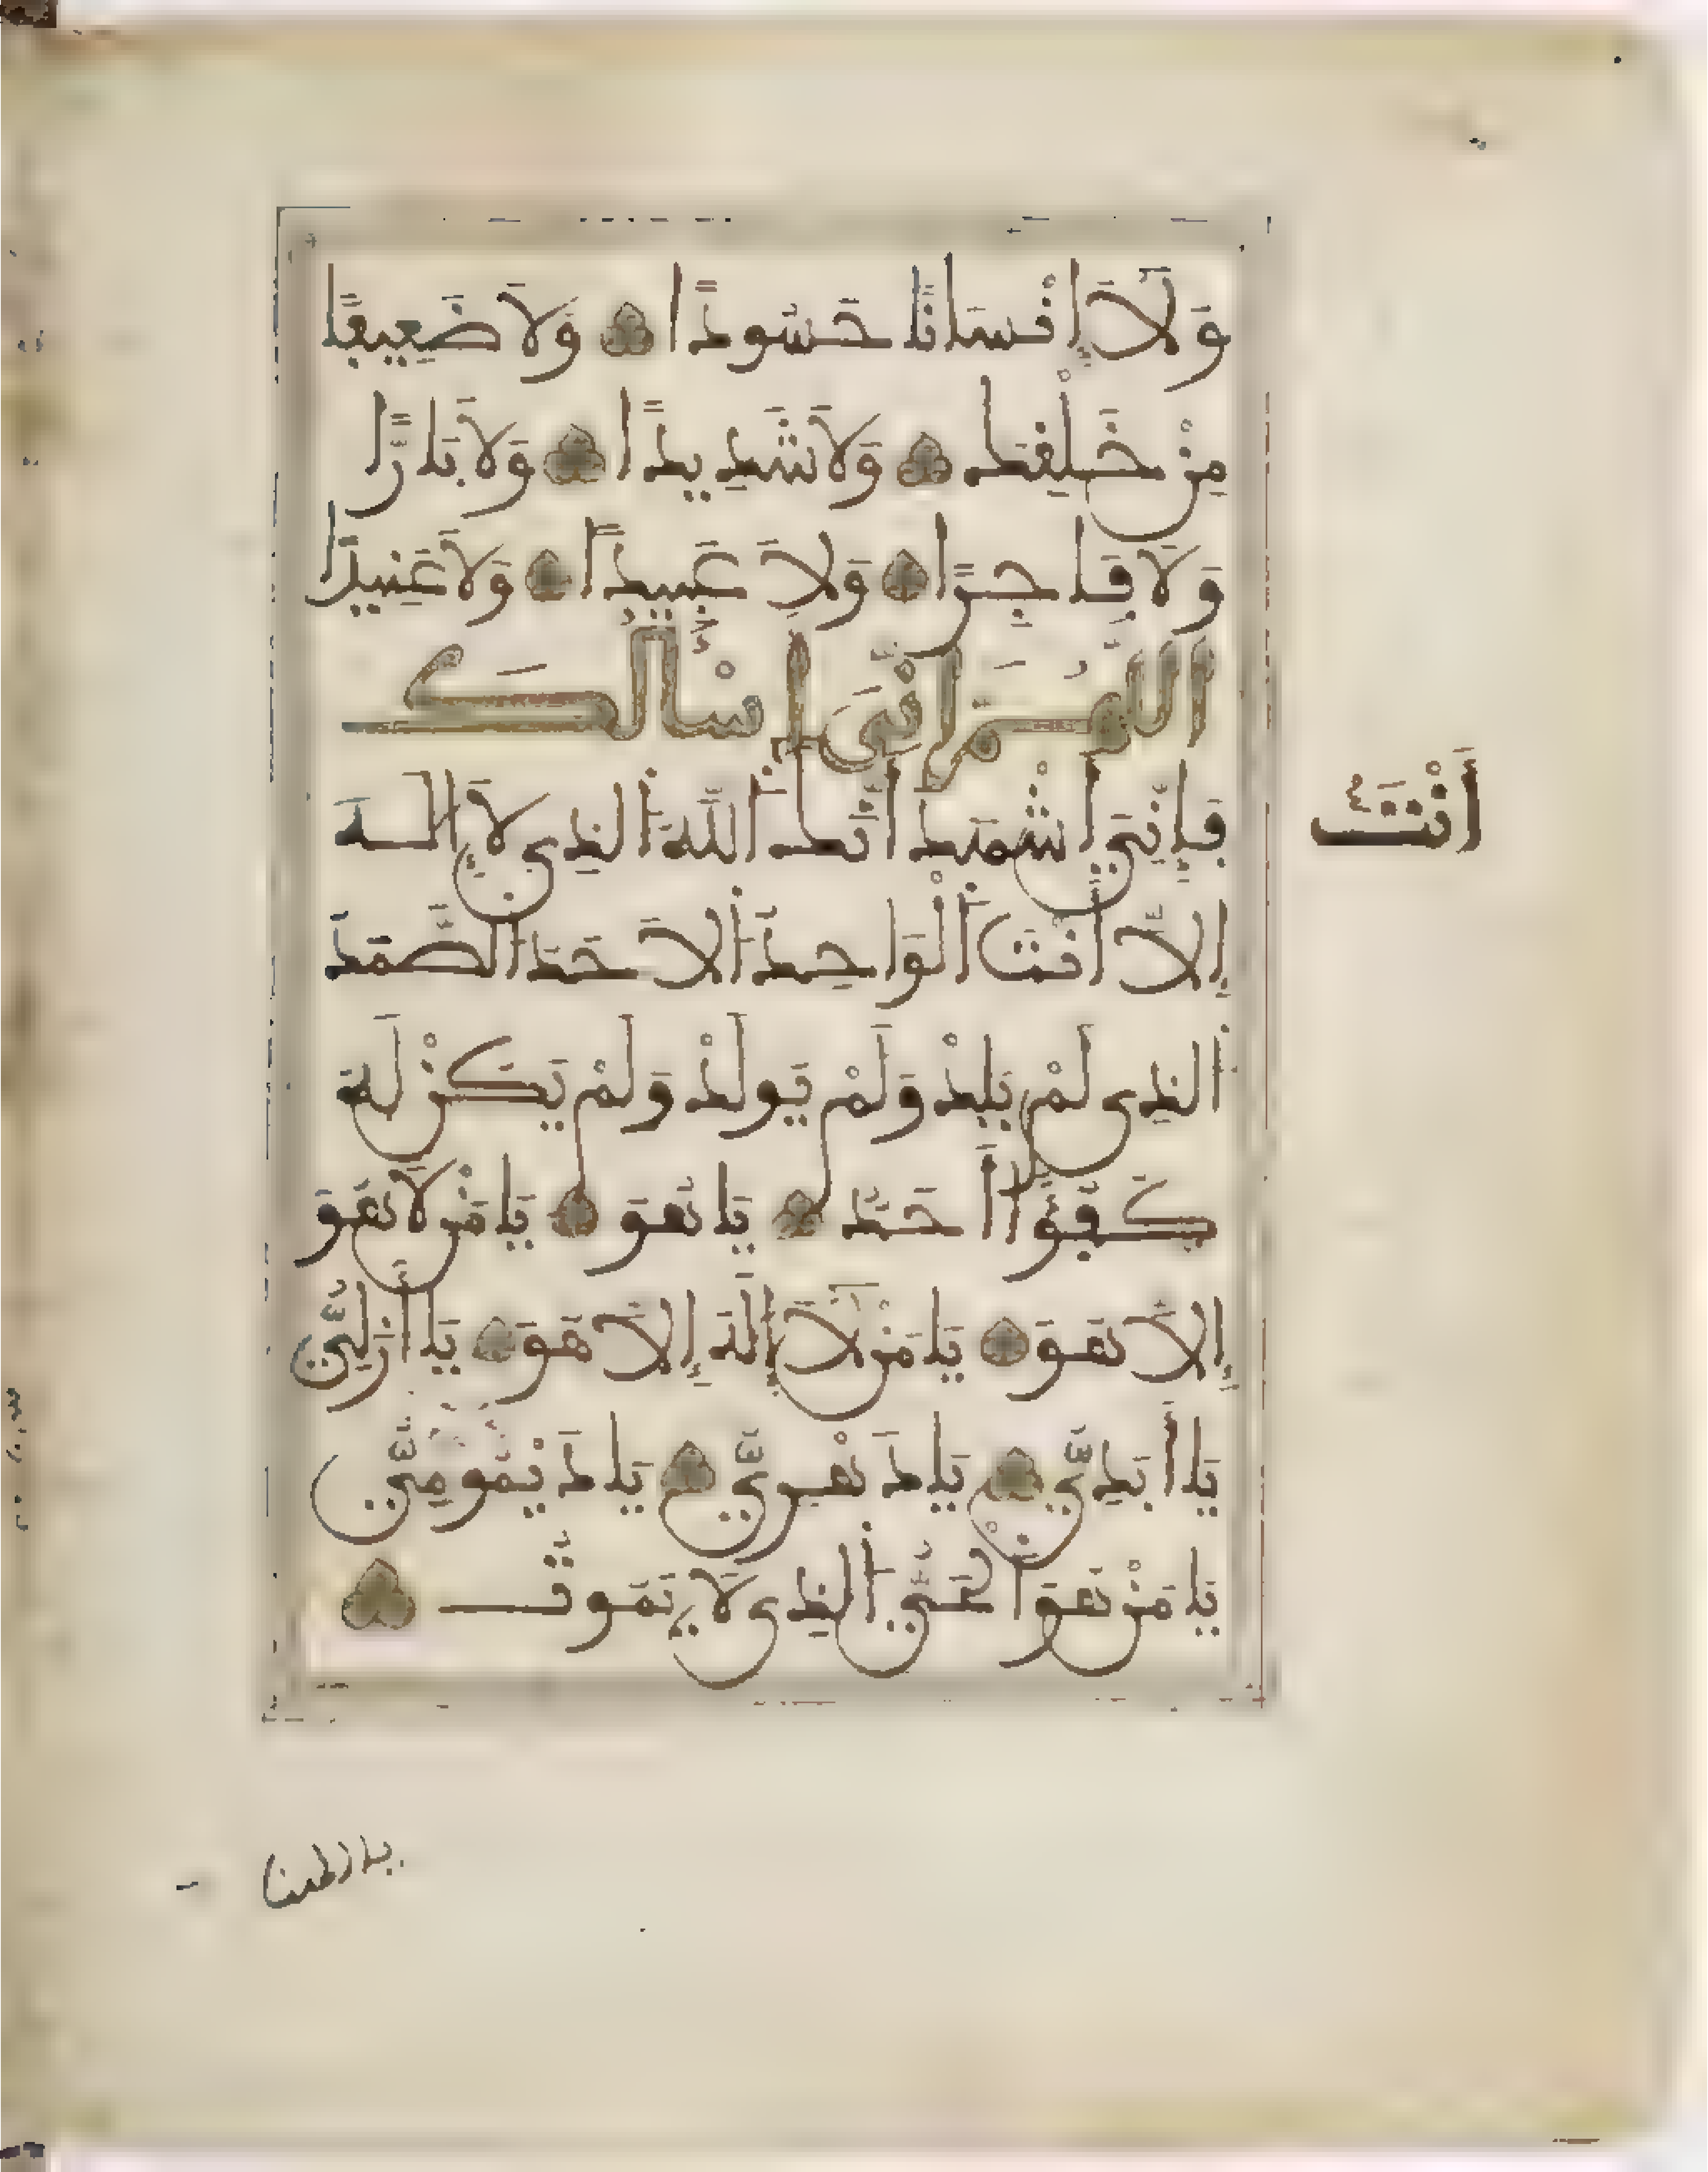 وَلَا إِنْسَانًا حَسُودًا وَلَا ضَعِيفًا
مِنْ خَلْفِكَ وَلَا شَدِيدًا وَلَا بَارًّا
وَلَا فَاجِرًا وَلَا عَبِيدًا وَلَا عَنِيدًا
اللَّهُمَّ إِنِّي أَسْأَلُكَ
فَإِنِّي أَشْهَدُ أَنَّكَ اللَّهُ الَّذِي لَا إِلَهَ
أَنْتَ
إِلَّا أَنْتَ الْوَاحِدُ الْأَحَدُ الصَّمَدُ
الَّذِي لَمْ يَلِدْ وَلَمْ يُولَدْ وَلَمْ يَكُنْ لَهُ
كُفُؤًا أَحَدٌ يَا هُوَ يَا مَنْ لَا هُوَ
إِلَّا هُوَ يَا مَنْ لَا إِلَهَ إِلَّا هُوَ يَا أَزَلِيُّ
يَا أَبَدِيُّ يَا دَهْرِيُّ يَا دَيْمُومِيُّ
يَا مَنْ هُوَ الْحَيُّ الَّذِي لَا يَمُوتُ
يا إلهنا